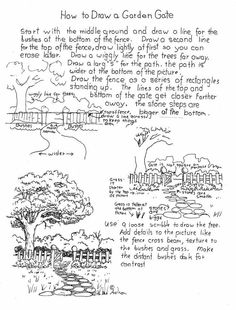 How to Draw a Garden Gate
Start with the middle ground and draw a line for the
bushes at the bottom of the fence. Draw a second line
for the top of the fence, draw lightly at first so you can
erase later. Draw a wiggly line for the trees far away.
Draw a large "S" for the path, the path is
wider at the bottom of the picture.
Draw the fence as a series of rectangles
standing up. The lines of the top and
bottom of the gate get closer further
away. the stone steps are
bigger at the bottom.
wiggly line for trees
fence
Bushes
Bushes
draw a line across
to keep things
wider
Grass is taller at
the bottom of
the picture
stones
are
bigger
Use a loose scribble to draw the tree.
Add details to the picture like
the fence cross beam, texture to
the bushes and grass. Make
the distant bushes dark for
contrast